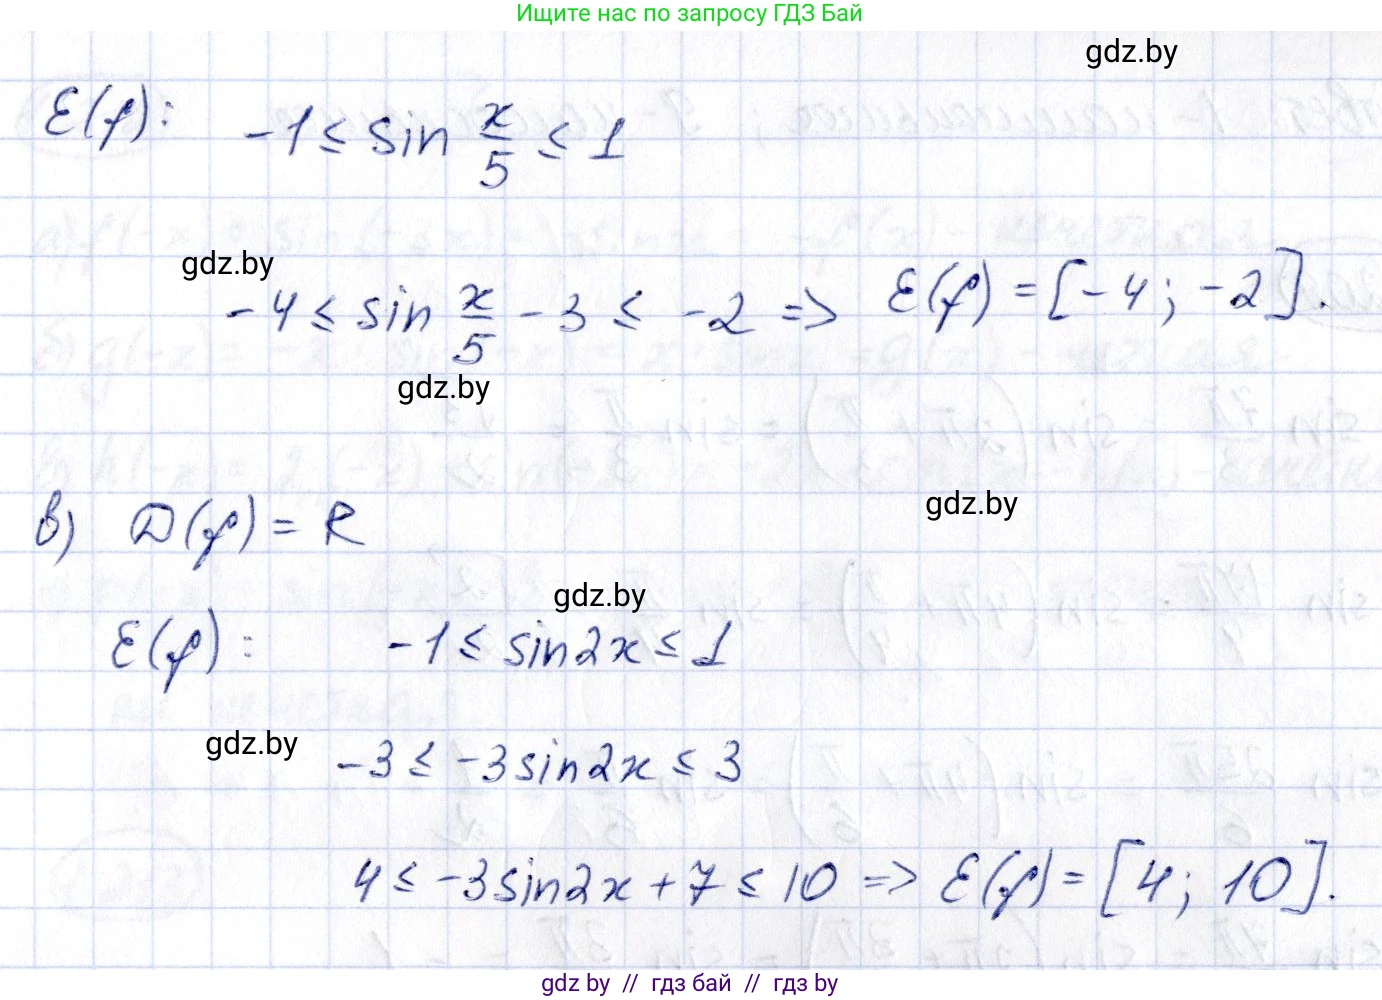 Ищите нас по запросу ГДЗ Бай
gdz.by
E(f): -1 ≤ sin x/5 ≤ 1
gdz.by
-4 ≤ sin x/5 - 3 ≤ -2 => E(f) = [-4; -2].
gdz.by
gdz.by
в) D(f) = R
gdz.by
E(f): -1 ≤ sin2x ≤ 1
gdz.by
-3 ≤ -3sin2x ≤ 3
4 ≤ -3sin2x + 7 ≤ 10 => E(f) = [4; 10].
gdz by // гдз бай // гдз by